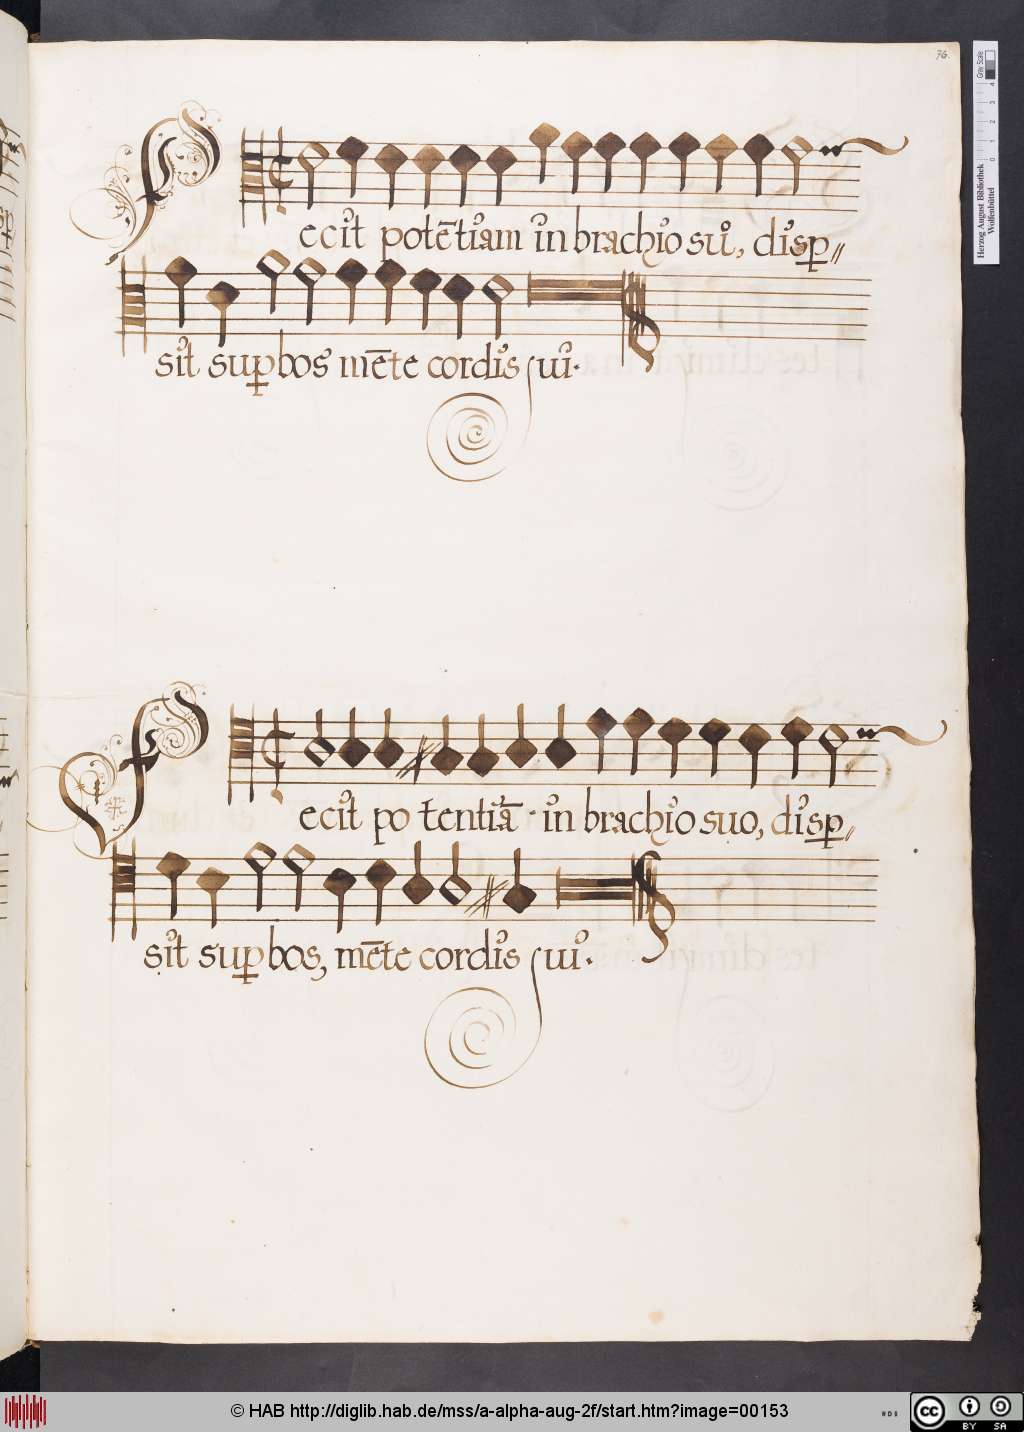 76.
Fecit potētiam in brachio suo, disp
sit supbos mēte cordis sui.
Fecit po tentiā in brachio suo, disp
sit supbos, mēte cordis sui.
Herzog August Bibliothek
Wolfenbüttel
0 1 2 3 4
Gray Scale
© HAB http://diglib.hab.de/mss/a-alpha-aug-2f/start.htm?image=00153
cc BY SA